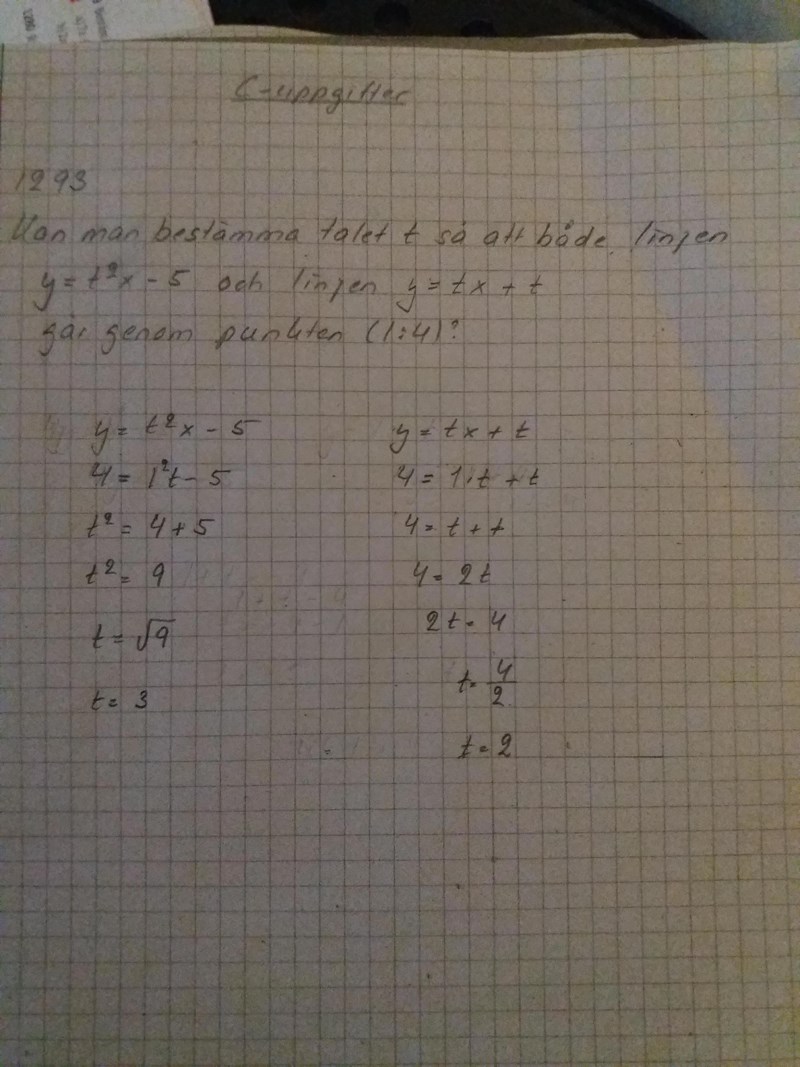 C-uppgifter
1293
Kan man bestämma talet t så att både linjen
y = t²x - 5 och linjen y = tx + t
går genom punkten (1:4)?
y = t²x - 5
4 = 1²t - 5
t² = 4 + 5
t² = 9
t = √9
t = 3
y = tx + t
4 = 1·t + t
4 = t + t
4 = 2t
2t = 4
t = 4/2
t = 2